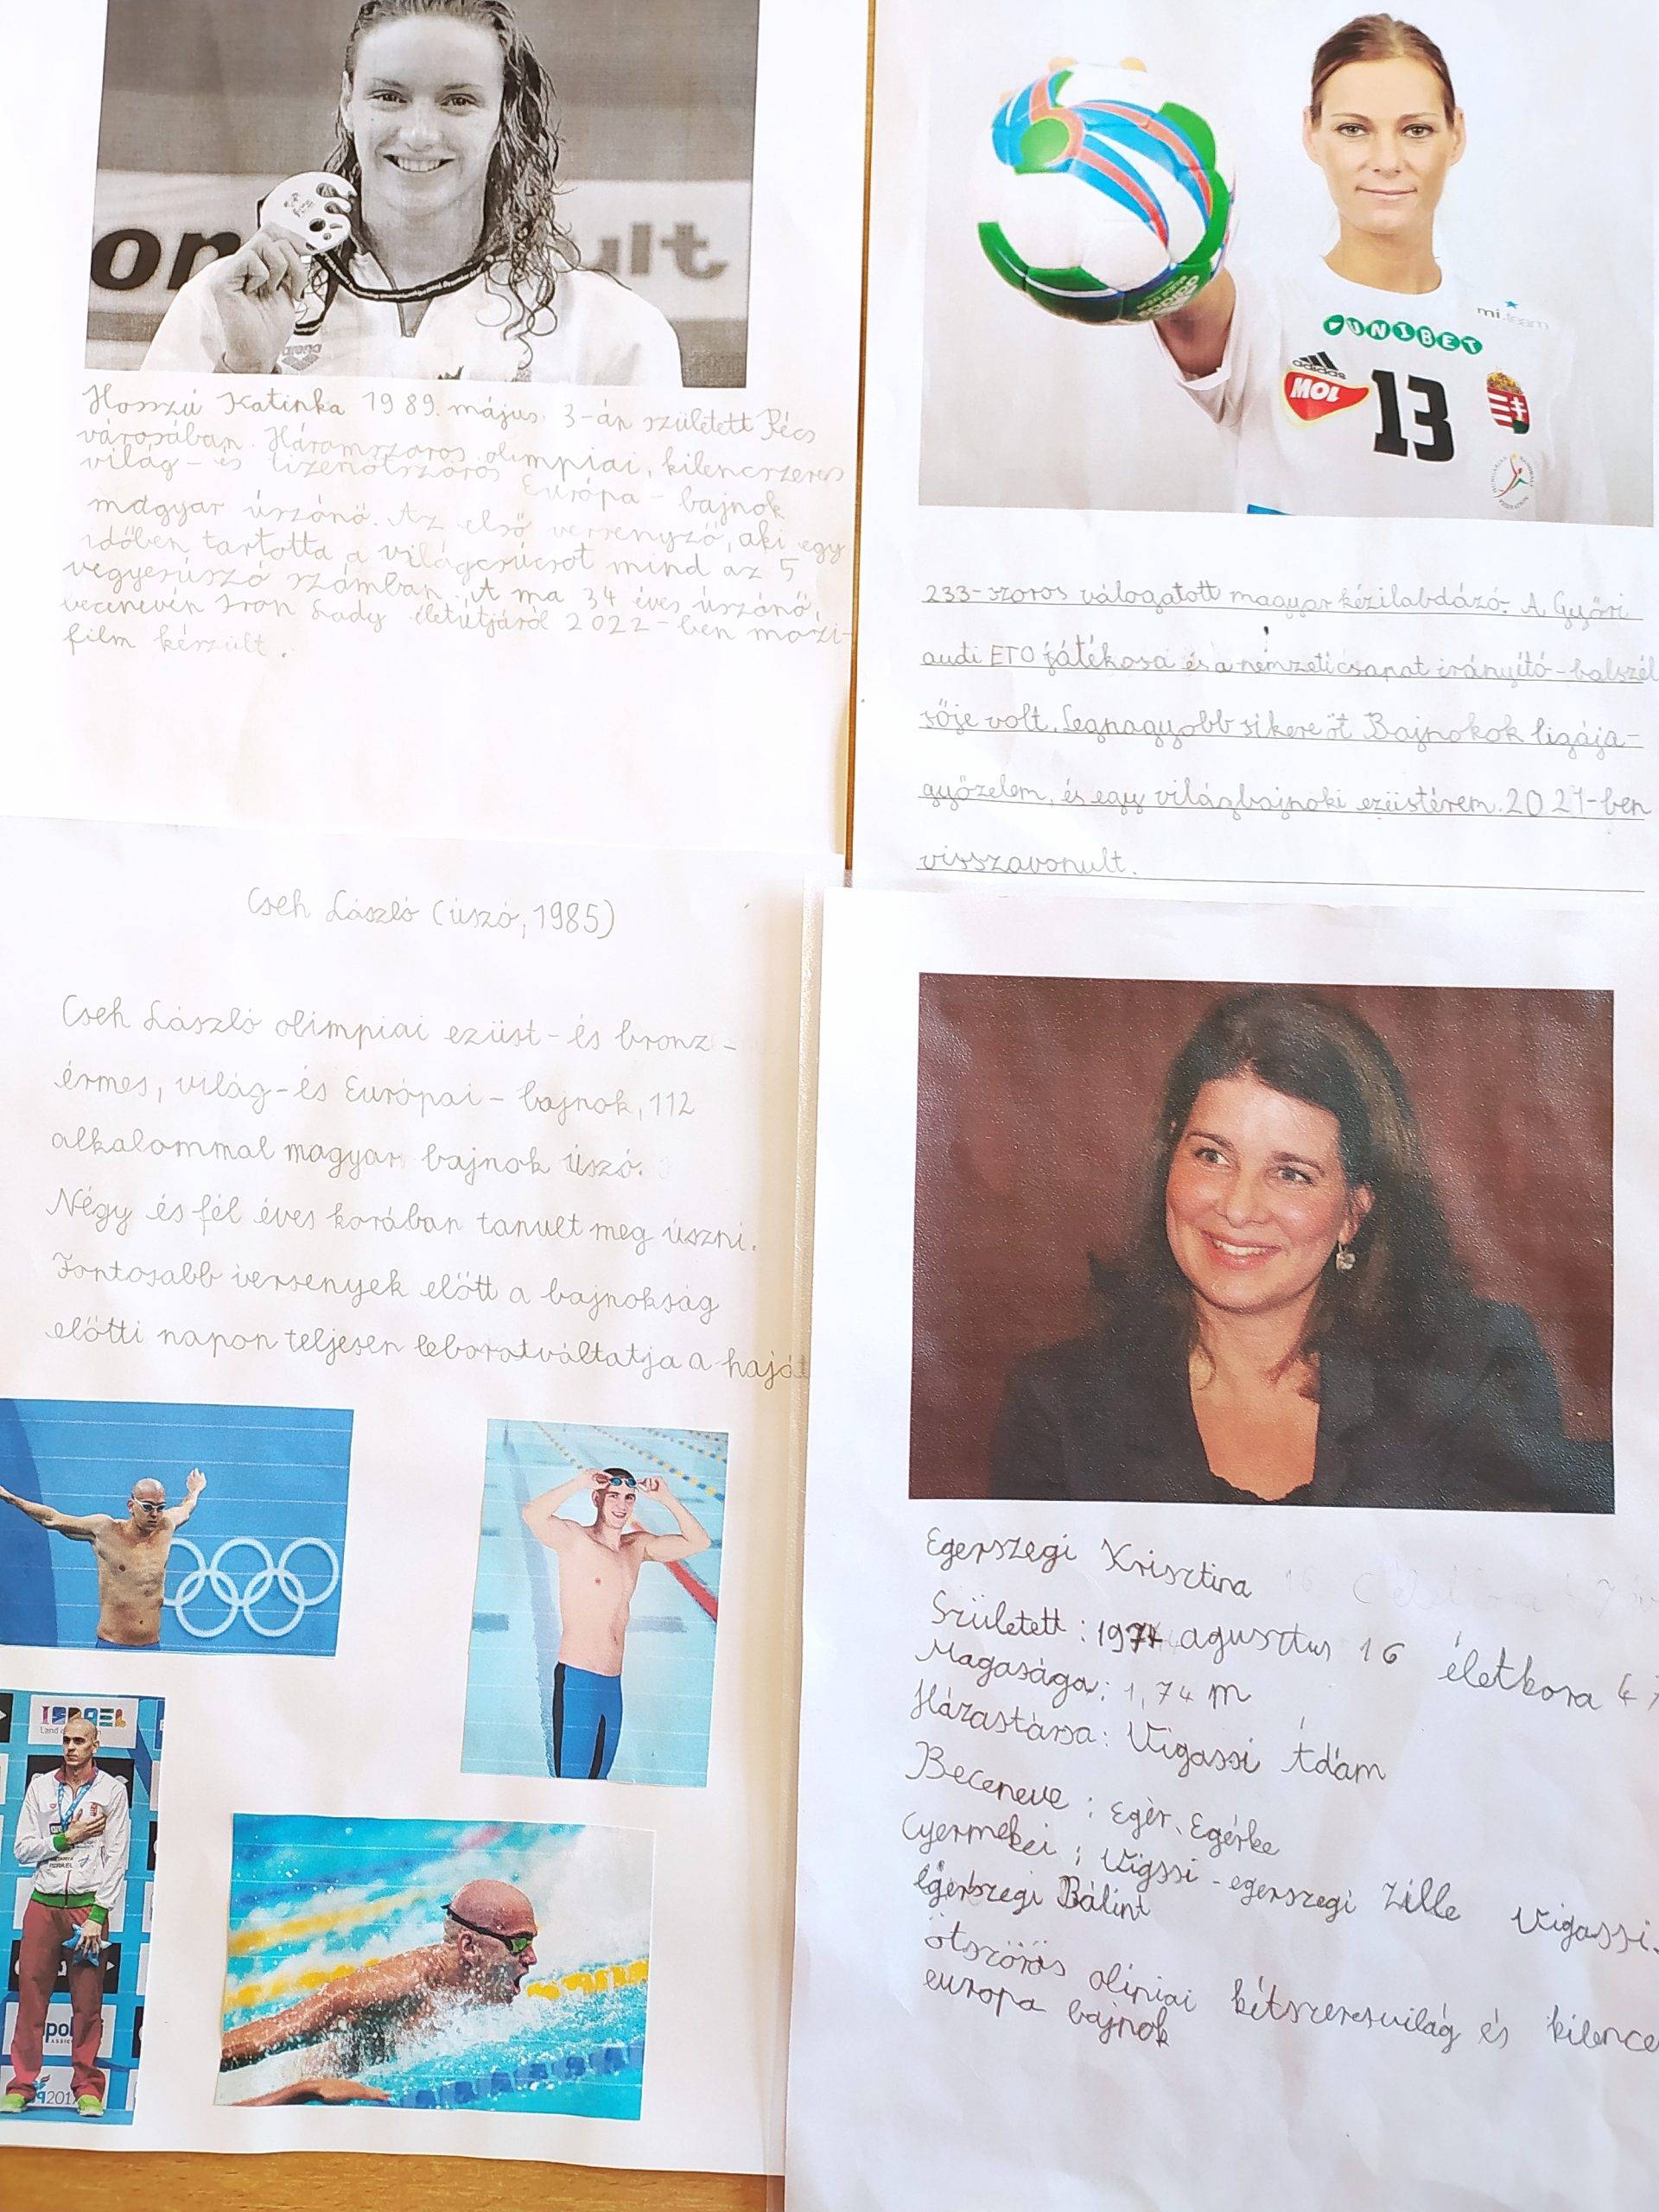 or
ult
arena
Hosszú Katinka 1989. május. 3-án született Pécs
városában. Háromszoros olimpiai, kilencszeres
világ- és tizenötszörös Európa-bajnok
magyar úszónő. Az első versenyző, aki egy
időben tartotta a világcsúcsot mind az 5
vegyesúszó számban. A ma 34 éves úszónő,
becenevén Iron Lady életútjáról 2022-ben mozi-
film készült.
mi team
UNIBET
adidas
MOL
13
233-szoros válogatott magyar kézilabdázó. A Győri
audi ETO játékosa és a nemzeticsapat irányító-balszél
sője volt. Legnagyobb sikere öt Bajnokok ligája-
győzelem, és egy világbajnoki ezüstérem. 2021-ben
visszavonult.
Cseh László (úszó, 1985)
Cseh László olimpiai ezüst- és bronz-
érmes, világ- és Európai-bajnok, 112
alkalommal magyar bajnok úszó.
Négy és fél éves korában tanult meg úszni.
Fontosabb versenyek előtt a bajnokság
előtti napon teljesen leborotváltatja a haját
ISRAEL
Egerszegi Krisztina
Született: 1974 agusztus 16 életkora 47
Magasága: 1,74 m
Házastársa: Vigassi Ádám
Beceneve: Egér, Egérke
Gyermekei: Vigssi-egerszegi Zille Vigassi.
Egerszegi Bálint
ötszörös olipiai kétszeresvilág és kilence
europa bajnok